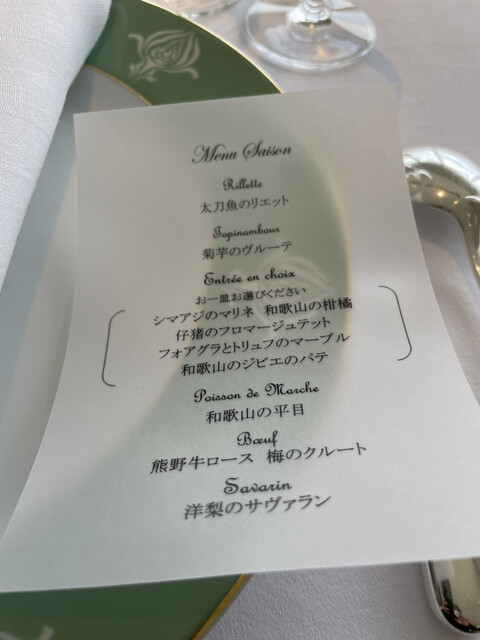 Menu Saison
Rillette
太刀魚のリエット
Topinambour
菊芋のヴルーテ
Entrée en choix
お一皿お選びください
シマアジのマリネ 和歌山の柑橘
仔猪のフロマージュテット
フォアグラとトリュフのマーブル
和歌山のジビエのパテ
Poisson de Marche
和歌山の平目
Bœuf
熊野牛ロース 梅のクルート
Savarin
洋梨のサヴァラン